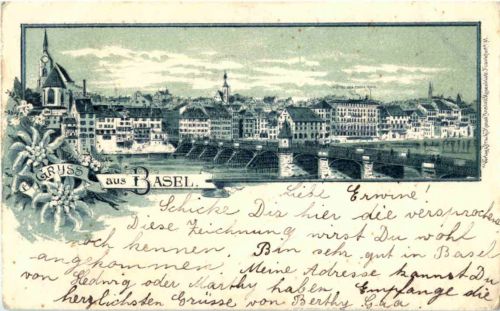 GRUSS aus BASEL.
Liebe Erwine!
Schicke Dir hier die versprochene
Diese Zeichnung wirst Du wohl
noch kennen. Bin sehr gut in Basel
angekommen. Meine Adresse kannst Du
von Hedwig oder Marthy haben. Empfange die
herzlichsten Grüsse von Berthy